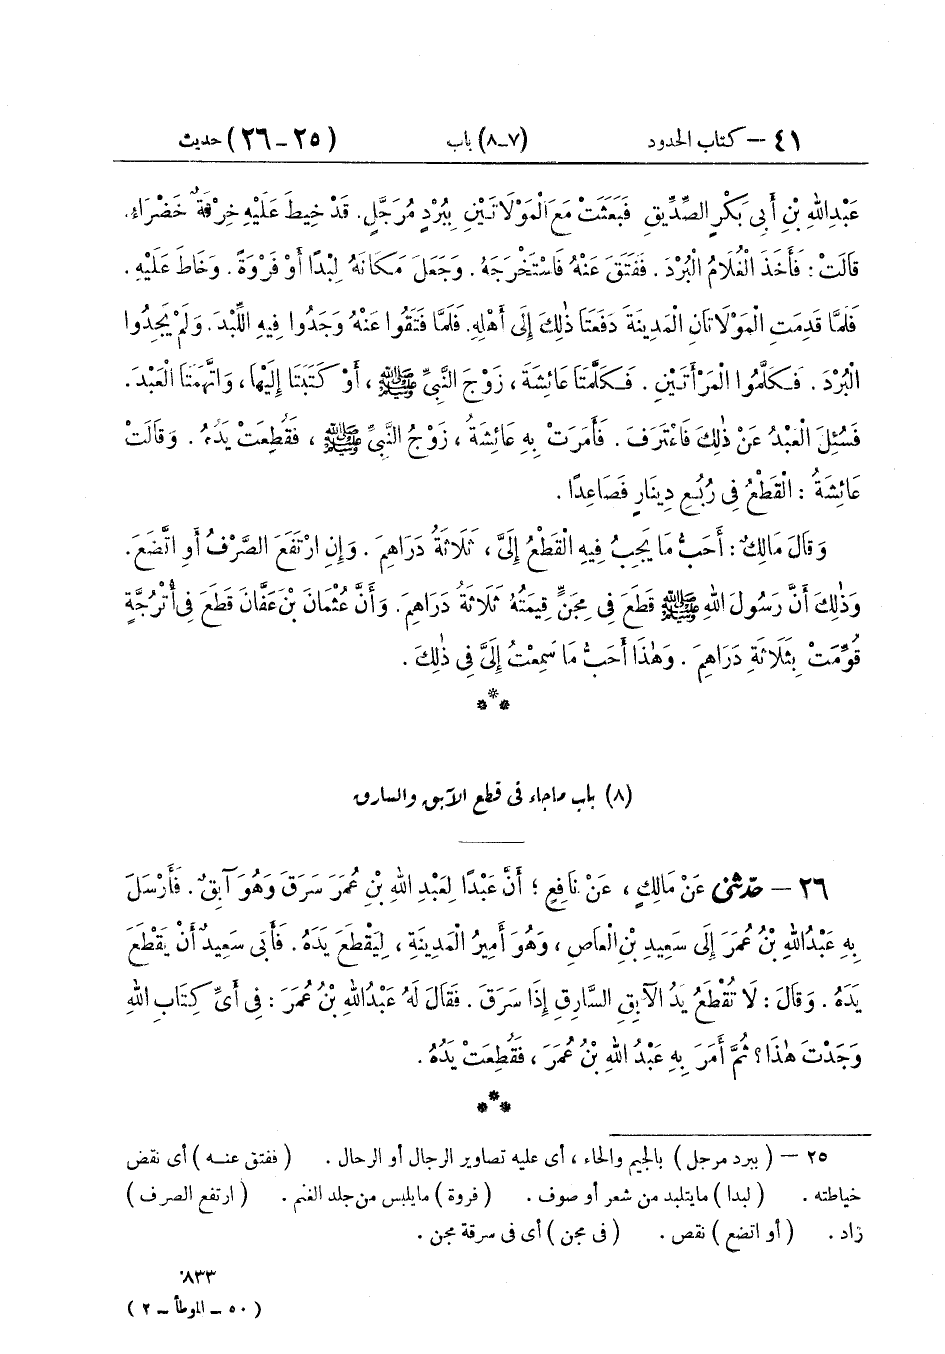 ٤١ – كتاب الحدود (٧-٨) باب (٢٥-٢٦) حديث
عَبْدِ اللهِ بْنِ أَبِى بَكْرٍ الصِّدِّيقِ فَبَعَثَتْ مَعَ الْمَوْلَاتَيْنِ بِبُرْدٍ مُرَجَّلٍ. قَدْ خِيطَ عَلَيْهِ خِرْقَةٌ خَضْرَاءُ.
قَالَتْ: فَأَخَذَ الْغُلَامُ الْبُرْدَ. فَفَتَقَ عَنْهُ فَاسْتَخْرَجَهُ. وَجَعَلَ مَكَانَهُ لِبْدًا أَوْ فَرْوَةً. وَخَاطَ عَلَيْهِ.
فَلَمَّا قَدِمَتِ الْمَوْلَاتَانِ الْمَدِينَةَ دَفَعَتَا ذٰلِكَ إِلَى أَهْلِهِ. فَلَمَّا فَتَقُوا عَنْهُ وَجَدُوا فِيهِ اللِّبْدَ. وَلَمْ يَجِدُوا
الْبُرْدَ. فَكَلَّمُوا الْمَرْأَتَيْنِ. فَكَلَّمَتَا عَائِشَةَ، زَوْجَ النَّبِىِّ ﷺ، أَوْ كَتَبَتَا إِلَيْهَا، وَاتَّهَمَتَا الْعَبْدَ.
فَسُئِلَ الْعَبْدُ عَنْ ذٰلِكَ فَاعْتَرَفَ. فَأَمَرَتْ بِهِ عَائِشَةُ، زَوْجُ النَّبِىِّ ﷺ، فَقُطِعَتْ يَدُهُ. وَقَالَتْ
عَائِشَةُ: الْقَطْعُ فِى رُبُعِ دِينَارٍ فَصَاعِدًا.
وَقَالَ مَالِكٌ: أَحَبُّ مَا يَجِبُ فِيهِ الْقَطْعُ إِلَىَّ، ثَلَاثَةُ دَرَاهِمَ. وَإِنِ ارْتَفَعَ الصَّرْفُ أَوِ اتَّضَعَ.
وَذٰلِكَ أَنَّ رَسُولَ اللهِ ﷺ قَطَعَ فِى مِجَنٍّ قِيمَتُهُ ثَلَاثَةُ دَرَاهِمَ. وَأَنَّ عُثْمَانَ بْنَ عَفَّانَ قَطَعَ فِى أُتْرُجَّةٍ
قُوِّمَتْ بِثَلَاثَةِ دَرَاهِمَ. وَهٰذَا أَحَبُّ مَا سَمِعْتُ إِلَىَّ فِى ذٰلِكَ.
***
(٨) باب ماجاء فى قطع الآبق والسارق
٢٦ – حدّثنى عَنْ مَالِكٍ، عَنْ نَافِعٍ؛ أَنَّ عَبْدًا لِعَبْدِ اللهِ بْنِ عُمَرَ سَرَقَ وَهُوَ آبِقٌ. فَأَرْسَلَ
بِهِ عَبْدُ اللهِ بْنُ عُمَرَ إِلَى سَعِيدِ بْنِ الْعَاصِ، وَهُوَ أَمِيرُ الْمَدِينَةِ، لِيَقْطَعَ يَدَهُ. فَأَبَى سَعِيدٌ أَنْ يَقْطَعَ
يَدَهُ. وَقَالَ: لَا تُقْطَعُ يَدُ الْآبِقِ السَّارِقِ إِذَا سَرَقَ. فَقَالَ لَهُ عَبْدُ اللهِ بْنُ عُمَرَ: فِى أَىِّ كِتَابِ اللهِ
وَجَدْتَ هٰذَا؟ ثُمَّ أَمَرَ بِهِ عَبْدُ اللهِ بْنُ عُمَرَ، فَقُطِعَتْ يَدُهُ.
***
٢٥ – (ببرد مرجل) بالجيم والحاء، أى عليه تصاوير الرجال أو الرحال. (ففتق عنه) أى نقض
خياطته. (لبدا) مايتلبد من شعر أو صوف. (فروة) مايلبس من جلد الغنم. (ارتفع الصرف)
زاد. (أو اتضع) نقص. (فى مجن) أى فى سرقة مجن.
٨٣٣
(٥٠ – الموطأ – ٢)